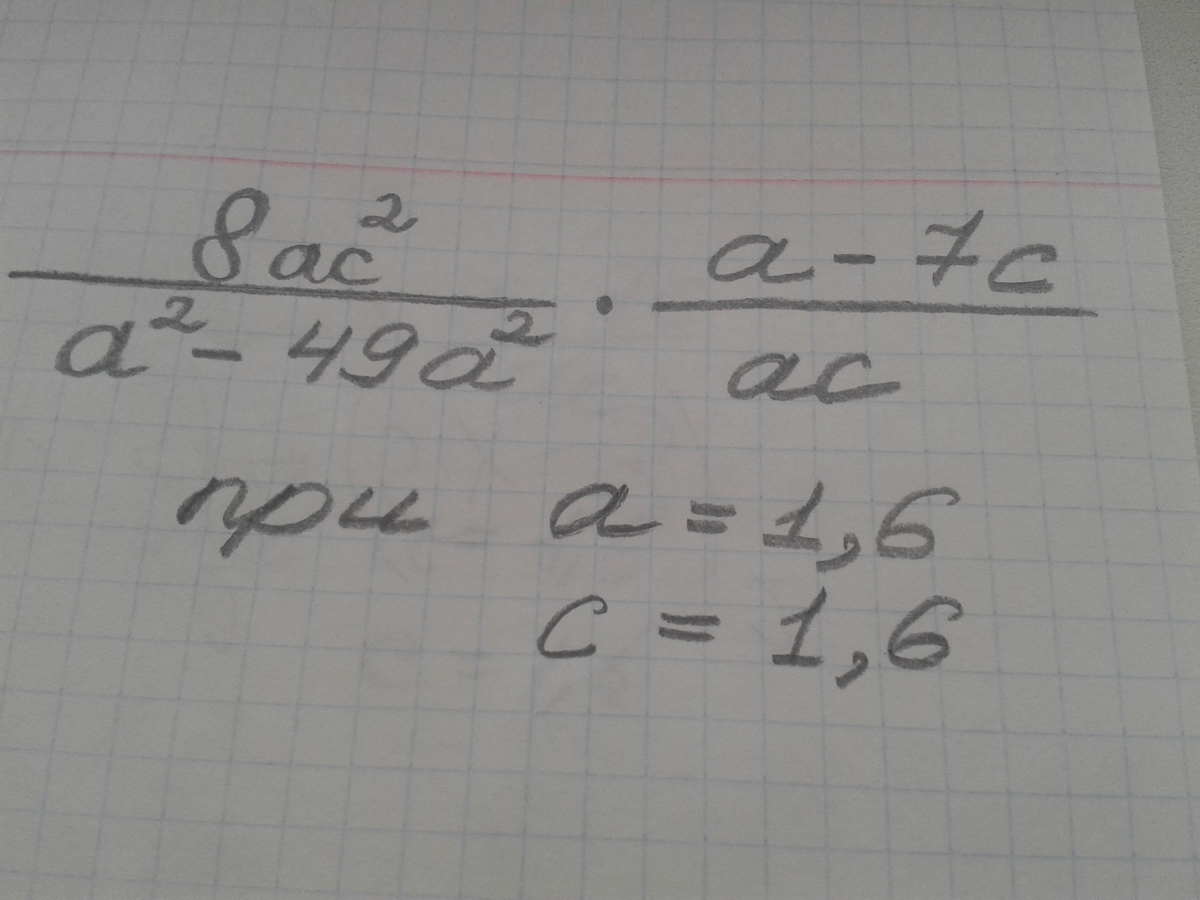 8ac² / a² - 49a² · a - 7c / ac
при a = 1,6
c = 1,6